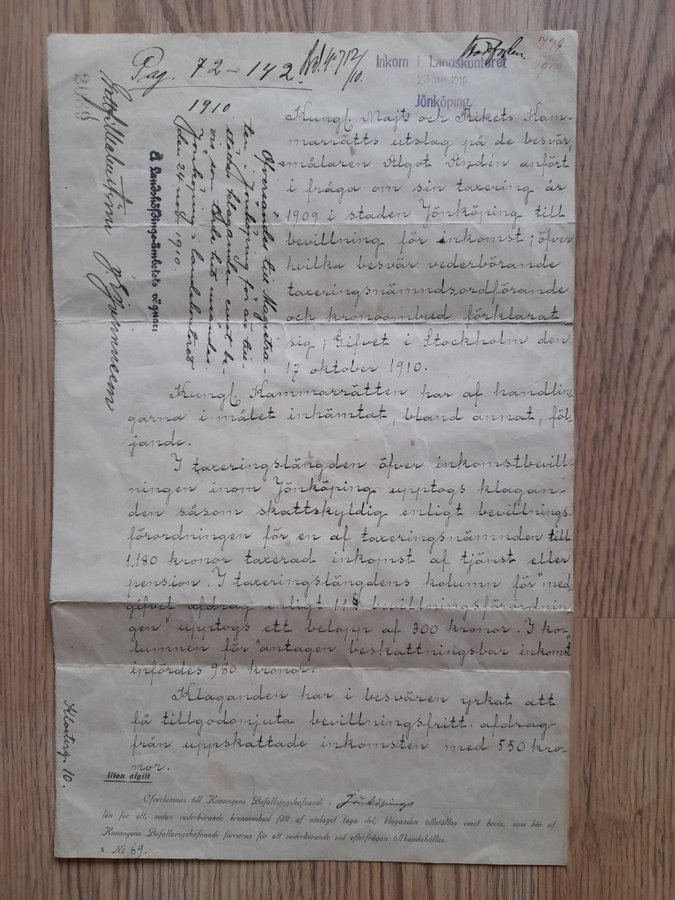 Pag. 72-142.
Inkom i Landskontoret
1910
Jönköping.
1910
Kungl. Majts och Rikets Kam-
marrätts utslag på de besvär,
målaren Algot Andén anfört
i fråga om sin taxering år
1909 i staden Jönköping till
bevillning för inkomst; öfver
hvilka besvär vederbörande
taxeringsnämndsordförande
och kronoombud förklarat
sig; Gifvet i Stockholm den
17 oktober 1910.
Kungl. Kammarrätten har af handlin-
garna i målet inhämtat, bland annat, föl-
jande.
I taxeringslängden öfver inkomstbevill-
ningen inom Jönköping upptogs klagan-
den såsom skattskyldig enligt bevillnings-
förordningen för en af taxeringsnämnden till
1.180 kronor taxerad inkomst af tjänst eller
pension. I taxeringslängdens kolumn för "med-
gifvet afdrag enligt bevillningsförordnin-
gen" upptogs ett belopp af 300 kronor. I ko-
lumnen för "antagen beskattningsbar inkomst"
infördes kronor.
Klaganden har i besvären yrkat att
få tillgodonjuta bevillningsfritt afdrag
från uppskattade inkomsten med 550 kro-
nor.
Öfversändes till Magistra-
ten i Jönköping för att till-
ställas klaganden emot be-
vis som skall hit insändas.
Jönköping i landskontoret
den 24 nov. 1910.
Å Landshöfdingeämbetets vägnar:
Klosterg. 10.
Utan afgift
Öfverlämnas till Konungens Befallningshafvande i Jönköpings
län för att, sedan vederbörande kronoombud fått af utslaget taga del, klaganden tillställas emot bevis, som bör af
Konungens Befallningshafvande förvaras för att vederbörande vid efterfrågan tillhandahållas.
s No 69.